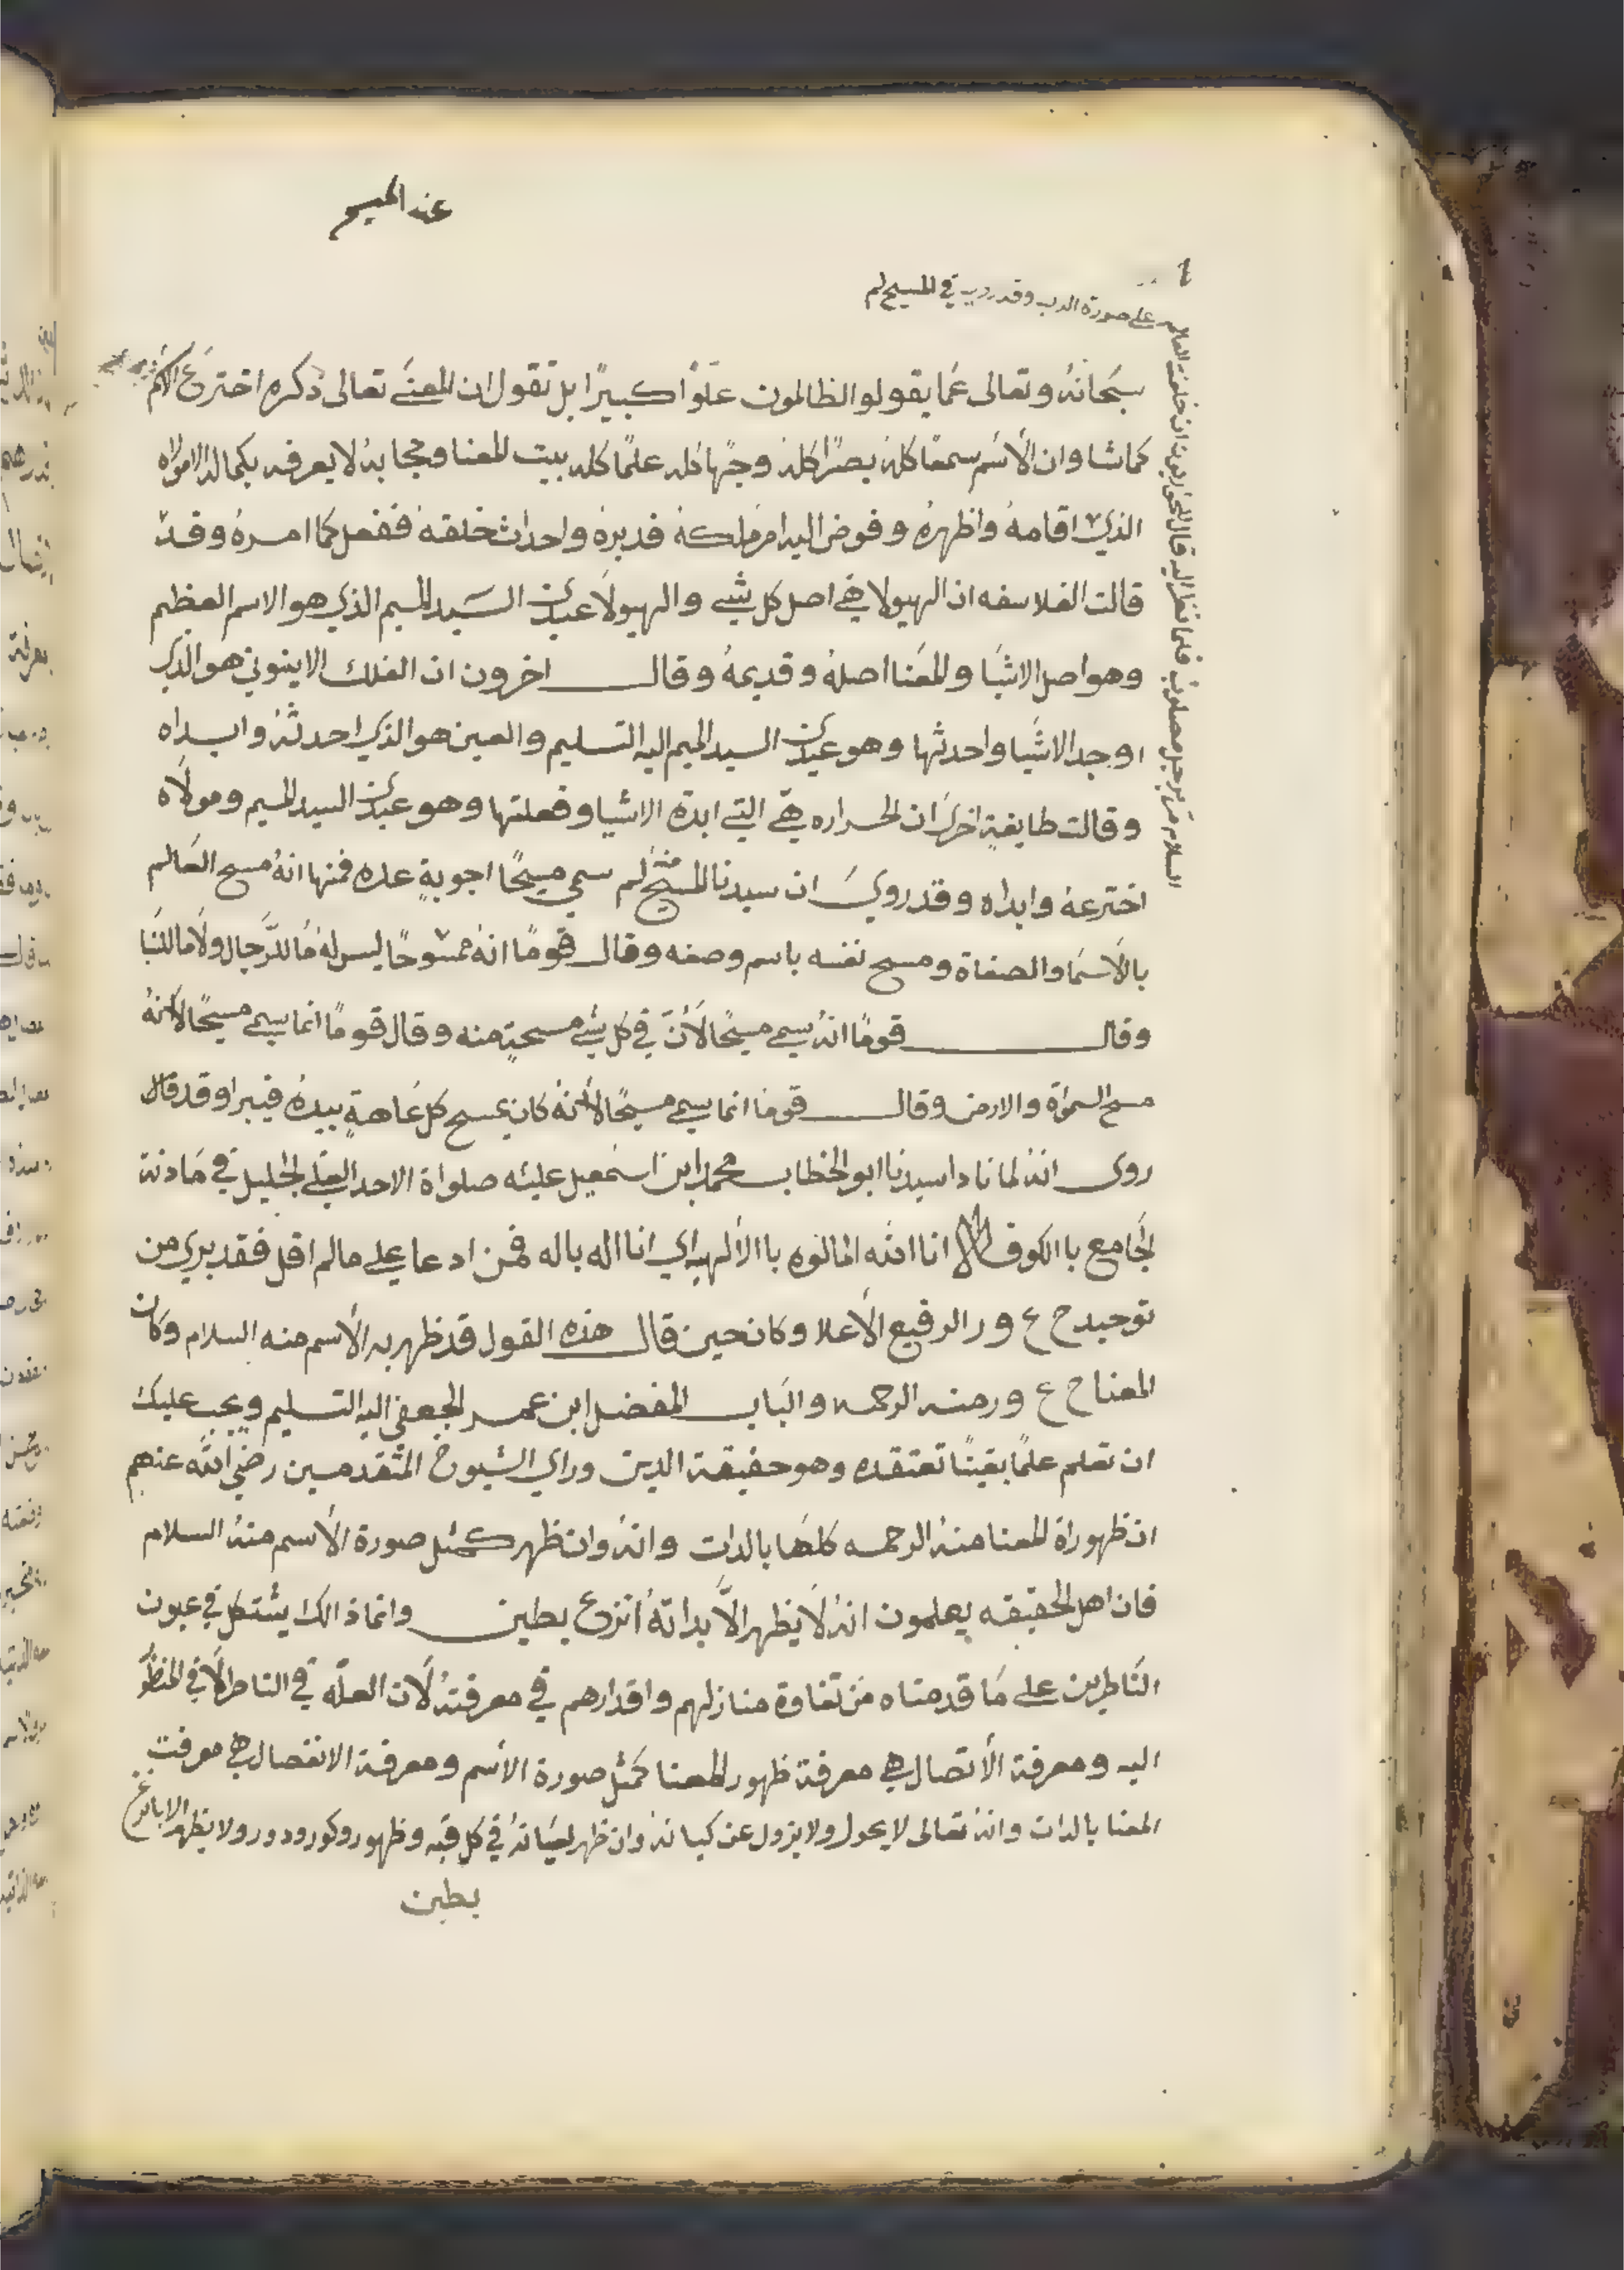 عند المسيح
على صورة الرب وقد روي في المسيح لم
سبحانهُ وتعالى عمَا يقولو الظالمون علوًا كبيرًا بل نقول ان المعنَى تعالى ذكره اخترع الاسم
كما شا وان الأسم سمعًا كلهُ بصرًا كلهُ وجهًا كله علمًا كله بيت المعنا وحجابهُ لا يعرفه بكماله الا مولاه
الذي اقامهُ واظهرهُ وفوض اليه امر ملكهُ فدبرهُ واحداث خلقهُ ففعل كما امرهُ وقد
قالت الفلاسفه ان الهيولا هي اصل كل شي والهيولا عبد السيد الميم الذي هو الاسم العظيم
وهو اصل الاشيا والمعنا اصلهُ وقديمهُ وقال اخرون ان الفلك الاينوني هو الذي
اوجد الاشيا واحدثها وهو عبد السيد الميم اليه التسليم والعين هو الذي احدثهُ وابداه
وقالت طايفةٍ اخرى ان الحراره هي التي ابدة الاشيا وفعلتها وهو عبد السيد الميم ومولاه
اخترعهُ وابداه وقد روي ان سيدنا المسيح لم سمي مسيحًا اجوبةٍ عده فمنها انهُ مسح العالم
بالأسما والصفاة ومسح نفسه باسم وصفه وقال قومًا انهُ ممسوحًا ليس لهُ ما للرجال ولا ما للنسا
وقال قومًا انهُ سمي مسيحًا لأنَ في كل شي مسحةٍ منه وقال قومًا انما سمي مسيحًا لأنهُ
مسح السموَاة والارض وقال قومًا انما سمي مسيحًا لأنهُ كان يمسح كل عاهةٍ بيدهُ فيبرا وقد قال
روى انهُ لما نادا سيدنا ابو الخطاب محمد ابن اسمعيل عليه صلواة الاحد العلي الجليل في مادنة
الجامع با الكوفه الا انا الله المالوه با الألهيه اي انا اله باله فمن ادعا علي مالم اقل فقد بري من
توحيد ح ع ور الرفيع الأعلا وكان حين قال هذه القول قد ظهر به الأسم منه السلام وكان
المعنا ح ع ور منه الرحمه والبَاب المفضل ابن عمر الجعفي اليه التسليم ويجب عليك
ان تعلم علمًا يقينًا تعتقده وهو حقيقة الدين وراي الشيوخ المتقدمين رضي الله عنهم
ان ظهوراة المعنا منهُ الرحمه كلها بالدات وانهُ وان ظهر كمثل صورة الأسم منهُ السلام
فان اهل الحقيقه يعلمون انهُ لا يظهر الاَّ بداتهُ انزع بطين وانما ذالك ايشتكل في عيون
الناظرين على مَا قدمناه من تفاوة منازلهم واقدارهم في معرفتهُ لأن العلّه في الناظر لا في المنظور
اليه ومعرفة الأتصال هي معرفة ظهور المعنا كمثل صورة الأسم ومعرفة الانفصال هي معرفت
المعنا بالدات وانهُ تعالى لا يحول ولا يزول عن كيانهُ وان ظهر لعيَانهُ في كل قبه وظهور وكور ودور ولا يظهر الا بانزع
بطين